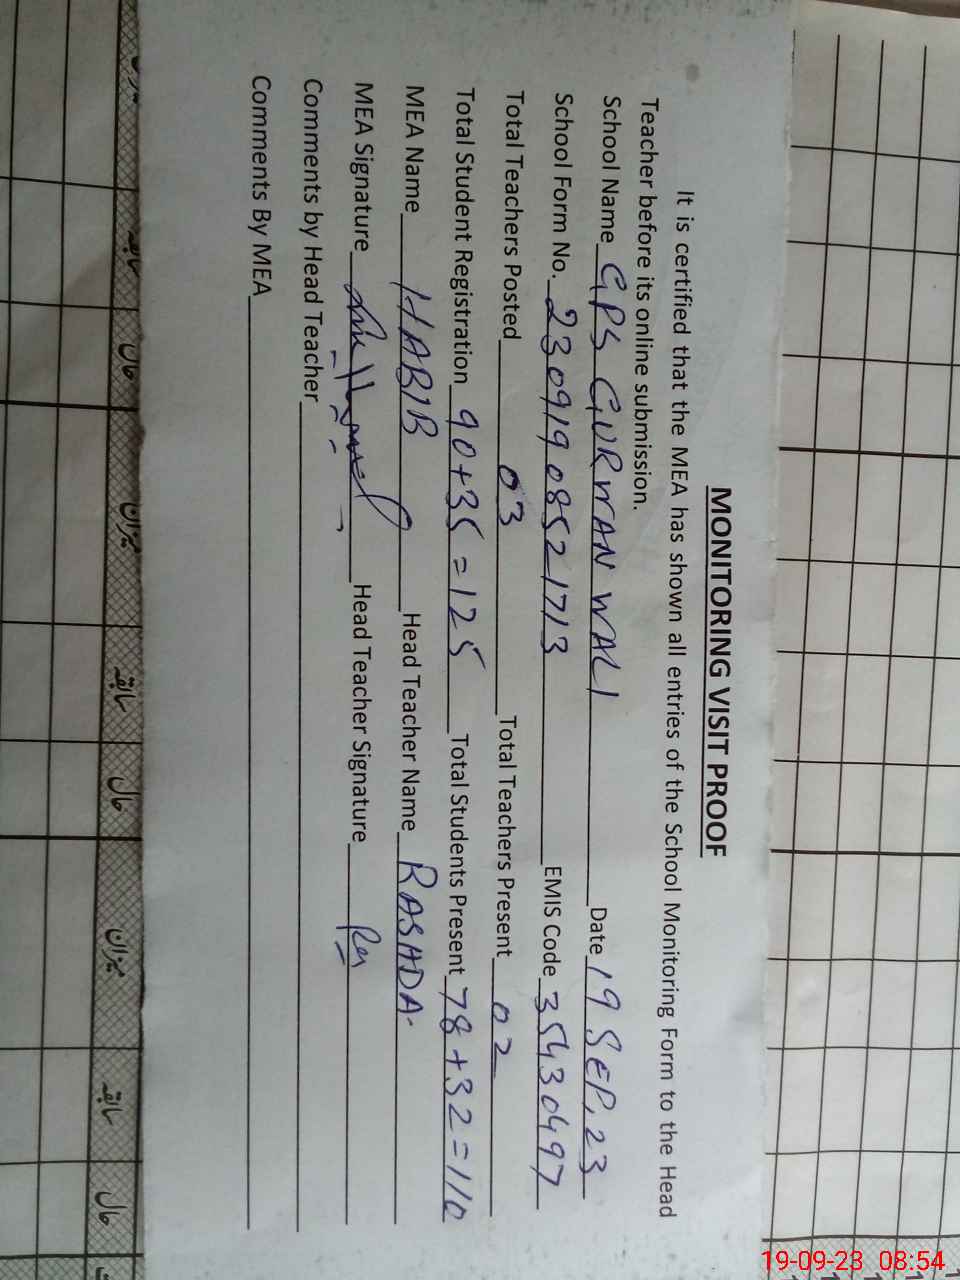 MONITORING VISIT PROOF
It is certified that the MEA has shown all entries of the School Monitoring Form to the Head
Teacher before its online submission.
School Name GPS GURWAN WALI Date 19 SEP, 23
School Form No. 23091908521713 EMIS Code 35430497
Total Teachers Posted 03 Total Teachers Present 02
Total Student Registration 90+35=125 Total Students Present 78+32=110
MEA Name HABIB Head Teacher Name RASHDA.
MEA Signature Head Teacher Signature
Comments by Head Teacher
Comments By MEA
سابقہ حال میزان سابقہ حال میزان سابقہ حال
19-09-23 08:54